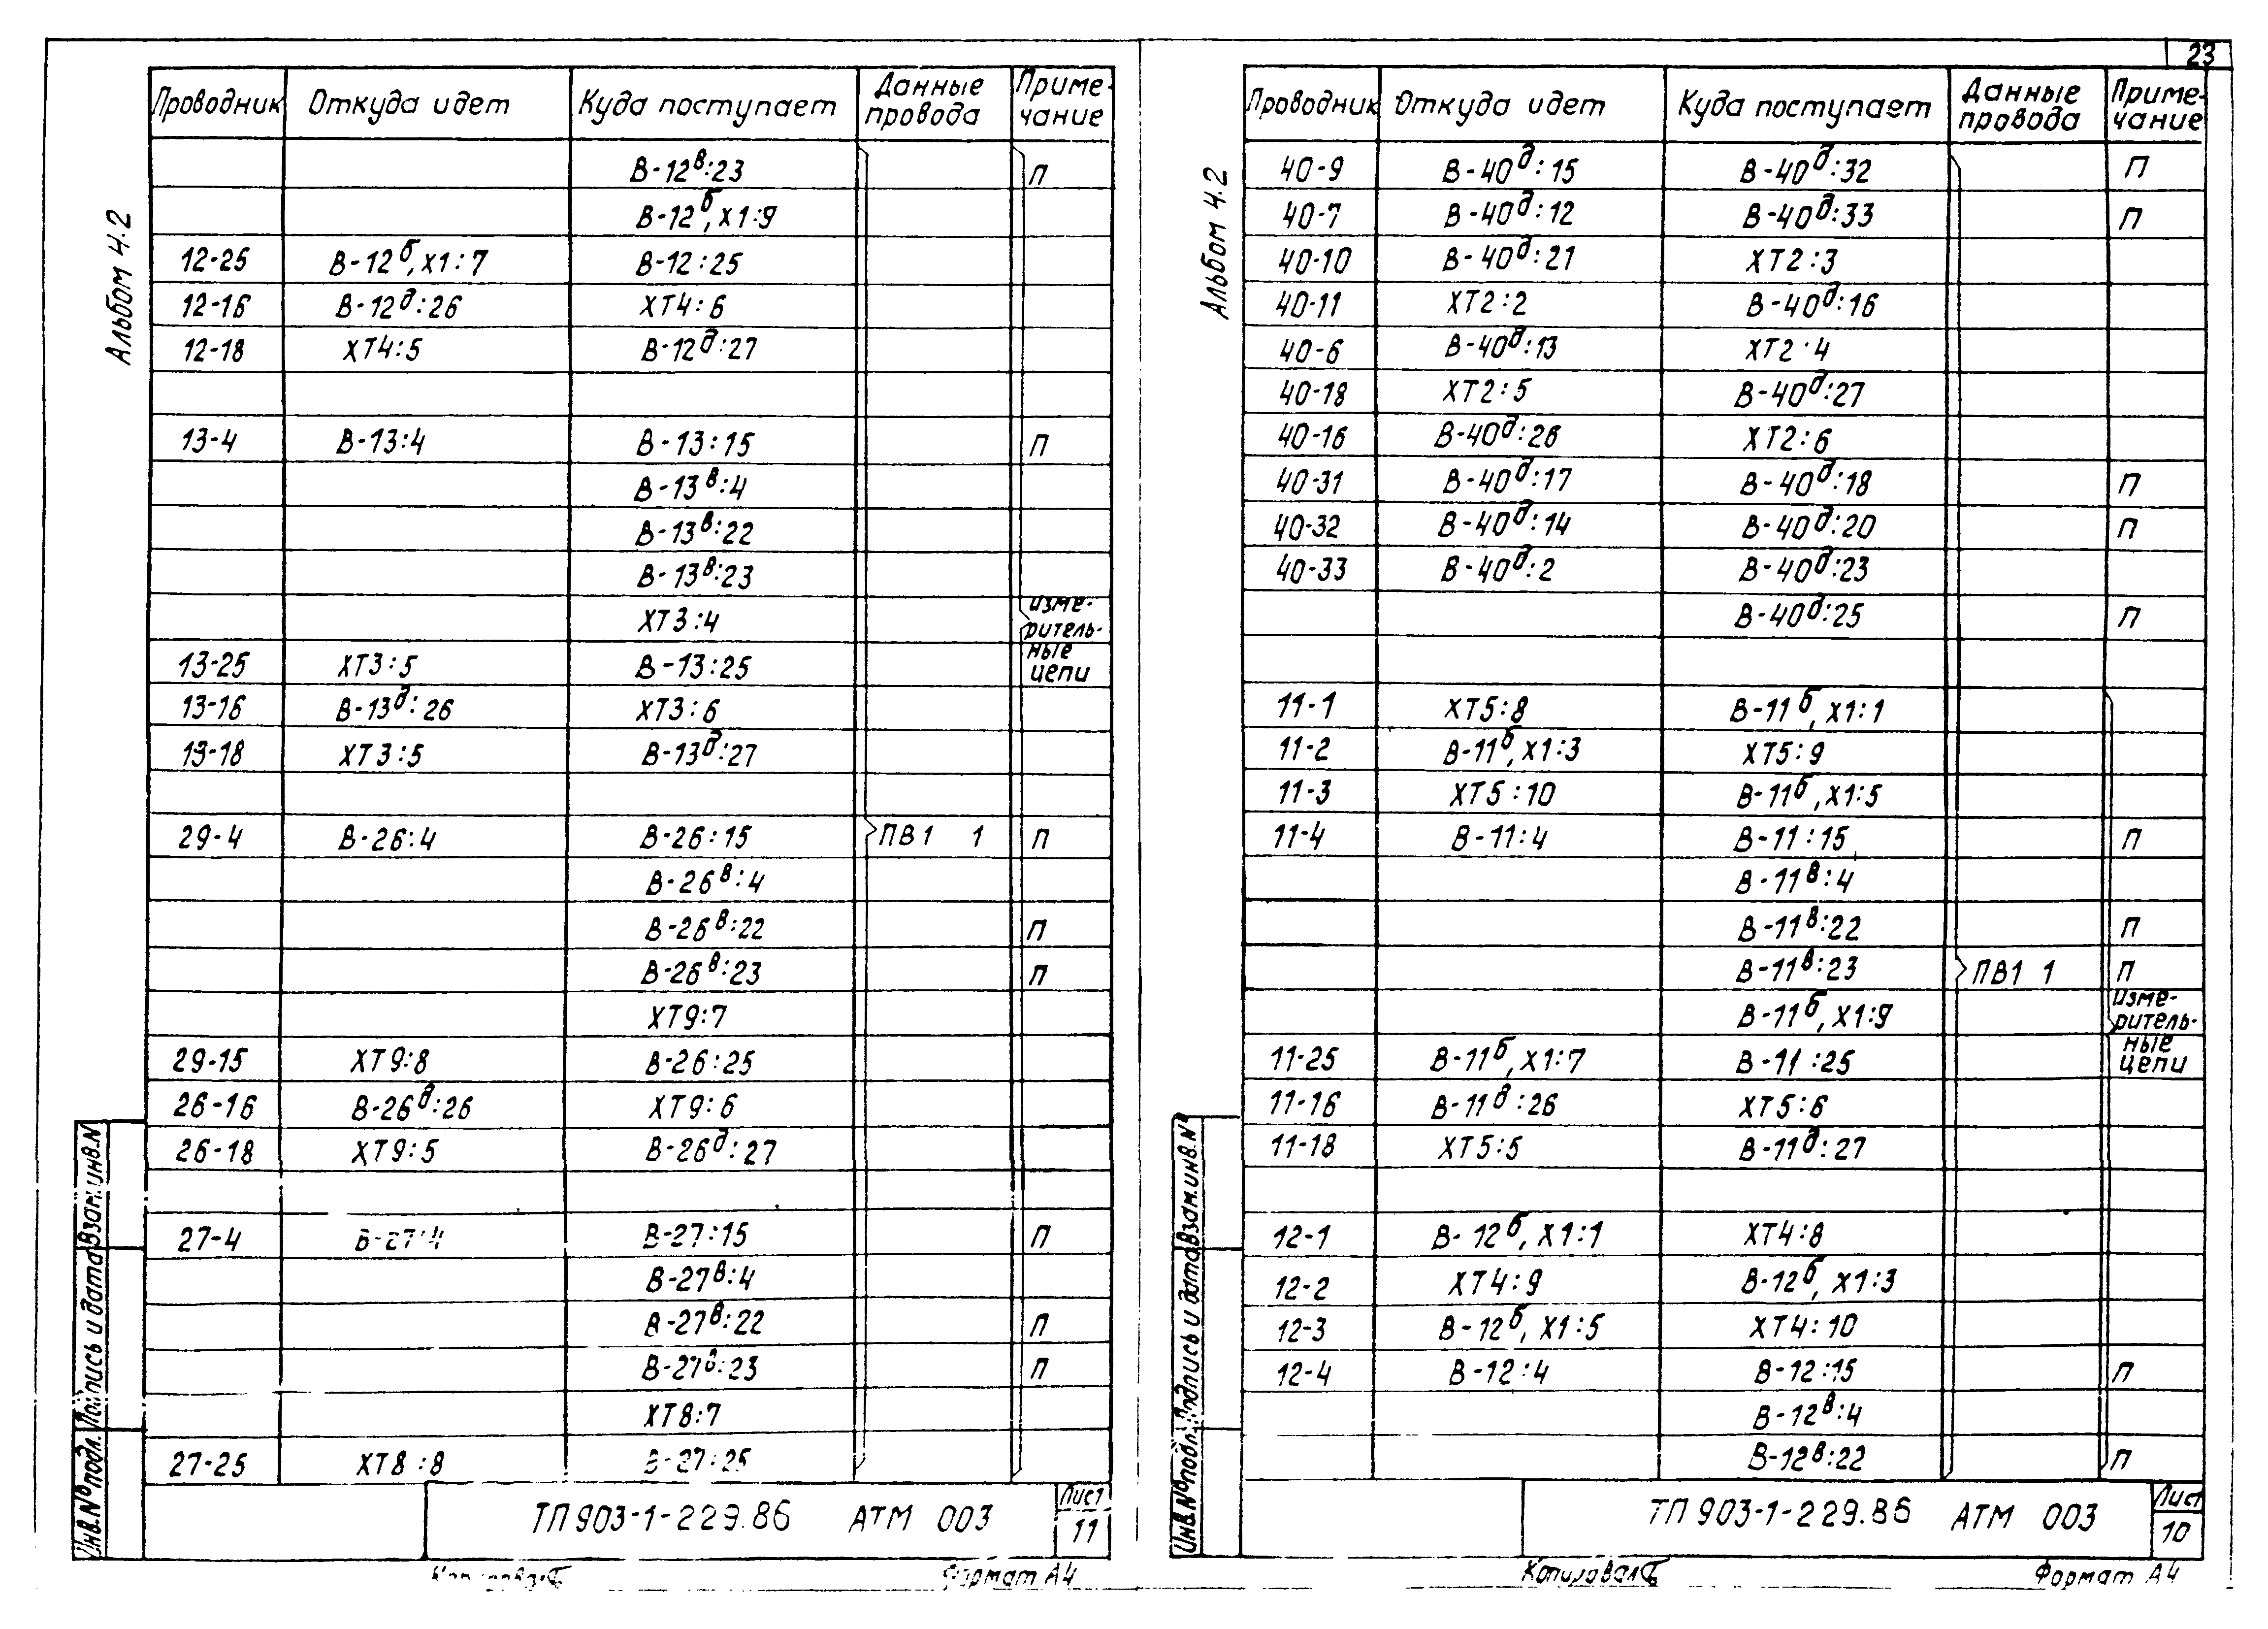 23
Альбом 4.2
Проводник Откуда идет Куда поступает Данные провода Приме-чание
В-12в:23 П
В-12б, Х1:9
12-25 В-12б, Х1:7 В-12:25
12-16 В-12д:26 ХТ4:6
12-18 ХТ4:5 В-12д:27
13-4 В-13:4 В-13:15 П
В-13в:4
В-13в:22
В-13в:23
ХТ3:4 изме-ритель-ные цепи
13-25 ХТ3:5 В-13:25
13-16 В-13д:26 ХТ3:6
13-18 ХТ3:5 В-13д:27
29-4 В-26:4 В-26:15 ПВ1 1 П
В-26в:4
В-26в:22 П
В-26в:23 П
ХТ9:7
29-15 ХТ9:8 В-26:25
26-16 В-26д:26 ХТ9:6
26-18 ХТ9:5 В-26д:27
27-4 В-27:4 В-27:15 П
В-27в:4
В-27в:22 П
В-27в:23 П
ХТ8:7
27-25 ХТ8:8 В-27:25
Инв.№ подл. Подпись и дата Взам.инв.№
ТП 903-1-229.86 АТМ 003
Лист
11
Копировал
Формат А4
Альбом 4.2
Проводник Откуда идет Куда поступает Данные провода Приме-чание
40-9 В-40д:15 В-40д:32 П
40-7 В-40д:12 В-40д:33 П
40-10 В-40д:21 ХТ2:3
40-11 ХТ2:2 В-40д:16
40-6 В-40д:13 ХТ2:4
40-18 ХТ2:5 В-40д:27
40-16 В-40д:26 ХТ2:6
40-31 В-40д:17 В-40д:18 П
40-32 В-40д:14 В-40д:20 П
40-33 В-40д:2 В-40д:23
В-40д:25 П
11-1 ХТ5:8 В-11б, Х1:1
11-2 В-11б, Х1:3 ХТ5:9
11-3 ХТ5:10 В-11б, Х1:5
11-4 В-11:4 В-11:15 П
В-11в:4
В-11в:22 П
В-11в:23 ПВ1 1 П
В-11б, Х1:9 изме-ритель-ные цепи
11-25 В-11б, Х1:7 В-11:25
11-16 В-11д:26 ХТ5:6
11-18 ХТ5:5 В-11д:27
12-1 В-12б, Х1:1 ХТ4:8
12-2 ХТ4:9 В-12б, Х1:3
12-3 В-12б, Х1:5 ХТ4:10
12-4 В-12:4 В-12:15 П
В-12в:4
В-12в:22 П
Инв.№ подл. Подпись и дата Взам.инв.№
ТП 903-1-229.86 АТМ 003
Лист
10
Копировал
Формат А4